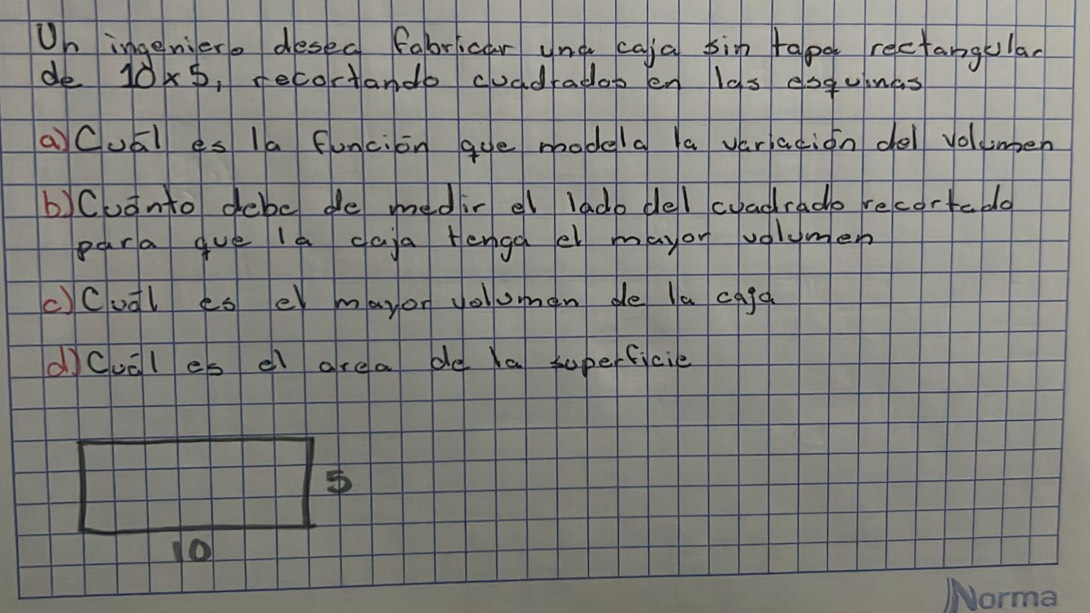 Un ingeniero desea fabricar una caja sin tapa rectangular
de 10x5, recortando cuadrados en las esquinas
a) Cuál es la función que modela la variación del volumen
b) Cuánto debe de medir el lado del cuadrado recortado
para que la caja tenga el mayor volumen
c) Cuál es el mayor volumen de la caja
d) Cuál es el area de la superficie
5
10
Norma